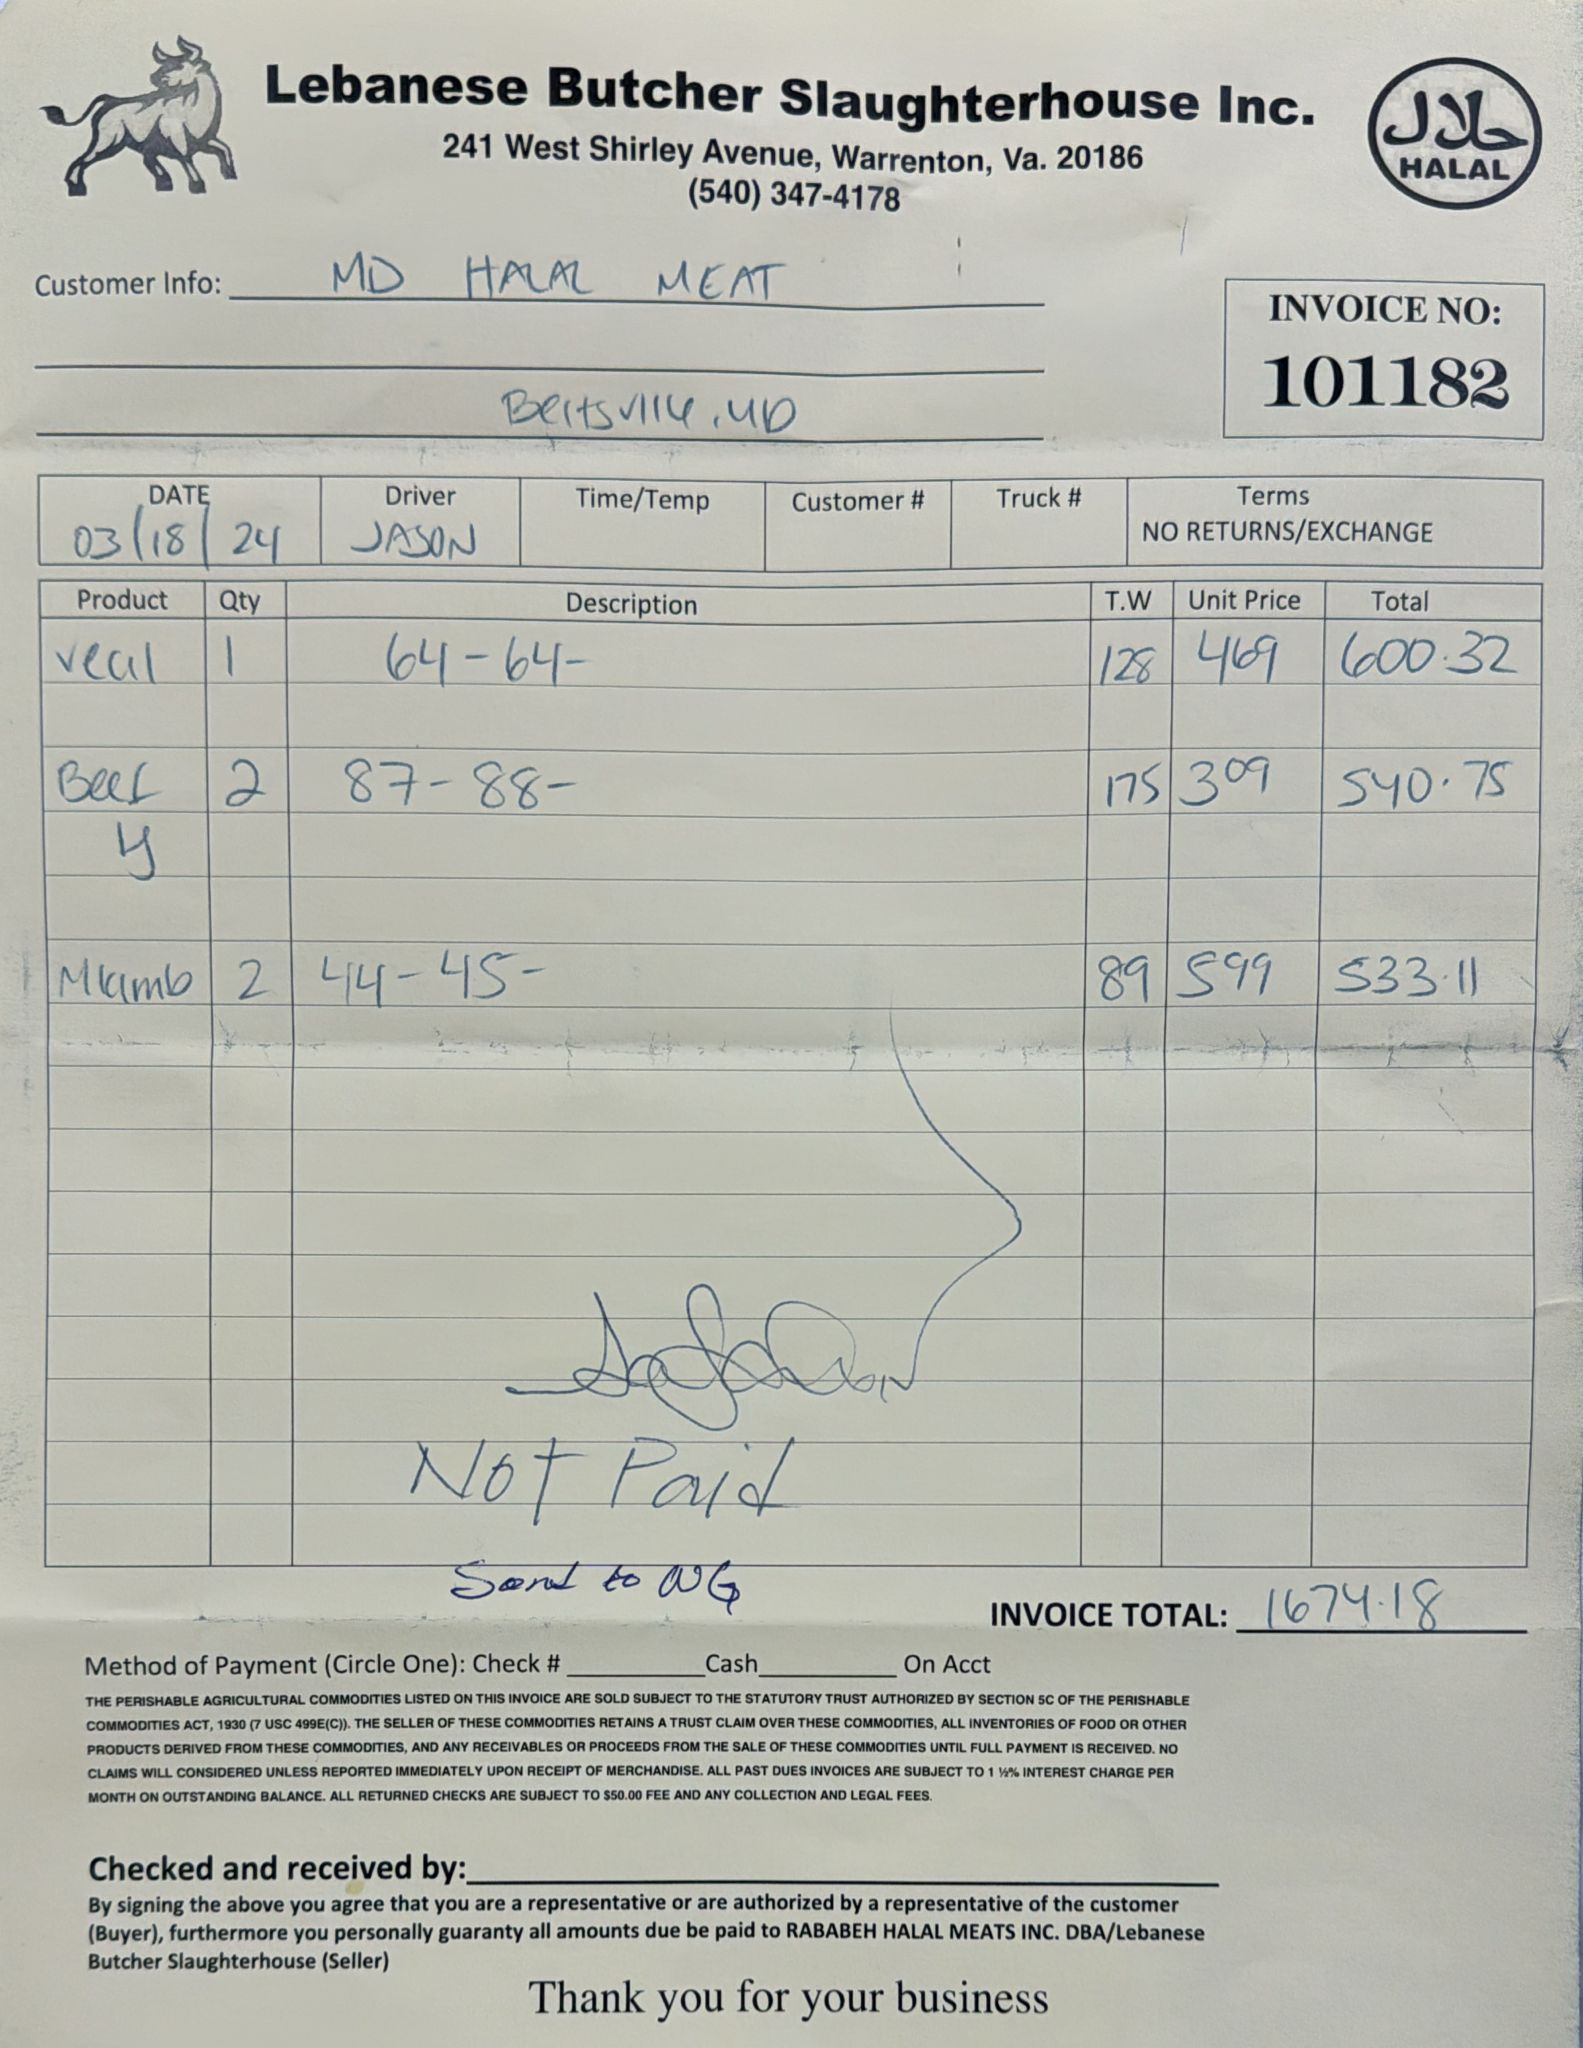 Lebanese Butcher Slaughterhouse Inc.
241 West Shirley Avenue, Warrenton, Va. 20186
(540) 347-4178
حلال
HALAL
Customer Info: MD HALAL MEAT
INVOICE NO:
101182
Beltsville, MD
DATE Driver Time/Temp Customer # Truck # Terms
03/18/24 JASON NO RETURNS/EXCHANGE
Product Qty Description T.W Unit Price Total
veal 1 64-64- 128 469 600.32
Beef 2 87-88- 175 309 540.75
y
Mlamb 2 44-45- 89 599 533.11
Not Paid
Send to NG
INVOICE TOTAL: 1674.18
Method of Payment (Circle One): Check # Cash On Acct
THE PERISHABLE AGRICULTURAL COMMODITIES LISTED ON THIS INVOICE ARE SOLD SUBJECT TO THE STATUTORY TRUST AUTHORIZED BY SECTION 5C OF THE PERISHABLE
COMMODITIES ACT, 1930 (7 USC 499E(C)). THE SELLER OF THESE COMMODITIES RETAINS A TRUST CLAIM OVER THESE COMMODITIES, ALL INVENTORIES OF FOOD OR OTHER
PRODUCTS DERIVED FROM THESE COMMODITIES, AND ANY RECEIVABLES OR PROCEEDS FROM THE SALE OF THESE COMMODITIES UNTIL FULL PAYMENT IS RECEIVED. NO
CLAIMS WILL CONSIDERED UNLESS REPORTED IMMEDIATELY UPON RECEIPT OF MERCHANDISE. ALL PAST DUES INVOICES ARE SUBJECT TO 1 ½% INTEREST CHARGE PER
MONTH ON OUTSTANDING BALANCE. ALL RETURNED CHECKS ARE SUBJECT TO $50.00 FEE AND ANY COLLECTION AND LEGAL FEES.
Checked and received by:
By signing the above you agree that you are a representative or are authorized by a representative of the customer
(Buyer), furthermore you personally guaranty all amounts due be paid to RABABEH HALAL MEATS INC. DBA/Lebanese
Butcher Slaughterhouse (Seller)
Thank you for your business